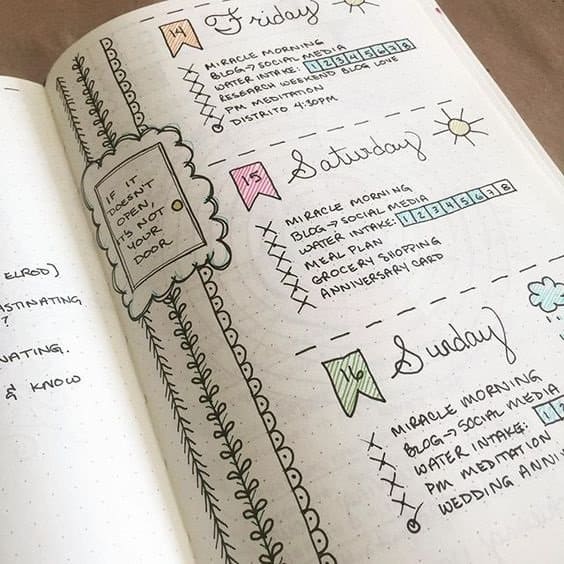 ELROD)
ASTINATING
?
NATING.
& KNOW
IF IT
DOESN'T
OPEN,
IT'S NOT
YOUR
DOOR
14 Friday
MIRACLE MORNING
BLOG → SOCIAL MEDIA
WATER INTAKE: 1 2 3 4 5 6 7 8
RESEARCH WEEKEND BLOG LOVE
PM MEDITATION
DISTRITO 4:30PM
15 Saturday
MIRACLE MORNING
BLOG → SOCIAL MEDIA
WATER INTAKE: 1 2 3 4 5 6 7 8
MEAL PLAN
GROCERY SHOPPING
ANNIVERSARY CARD
16 Sunday
MIRACLE MORNING
BLOG → SOCIAL MEDIA
WATER INTAKE: 1 2
PM MEDITATION
WEDDING ANNI